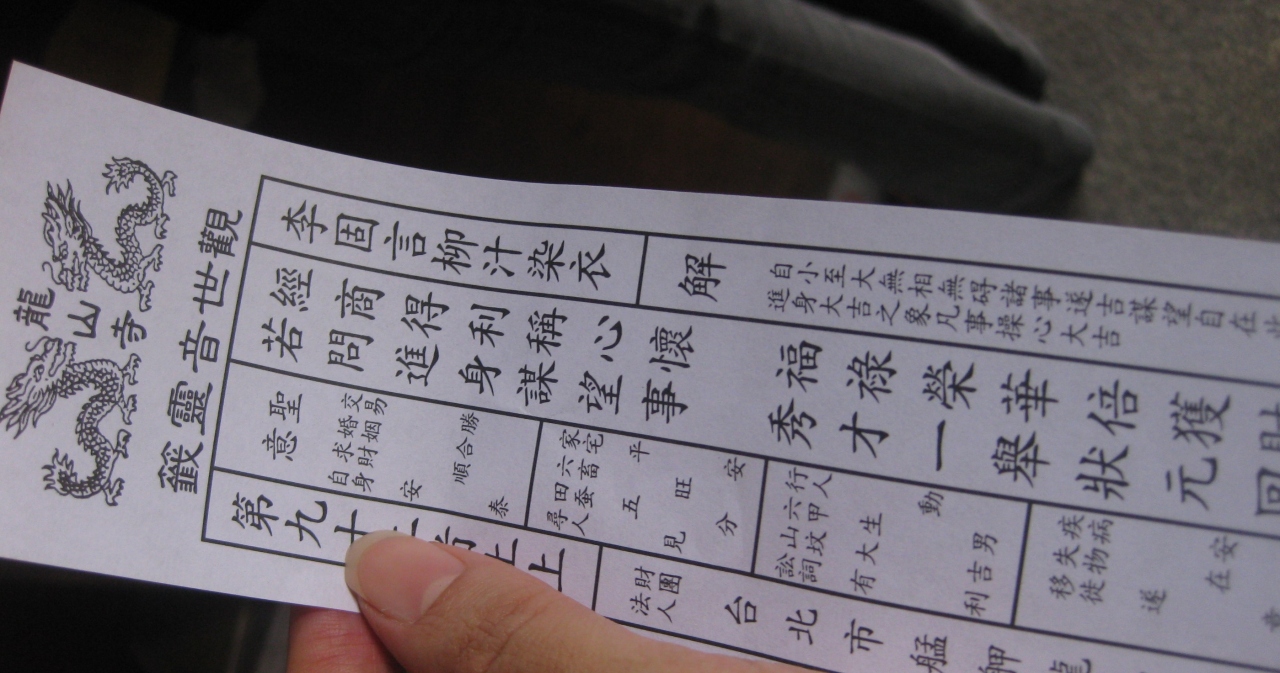 龍山寺
觀世音靈籤
李固言柳汁染衣
解
自小至大無相無碍諸事遂吉謀望自在
進身大吉之象凡事操心大吉
經商得利稱心懷
福祿榮華倍獲財
若問進身謀望事
秀才一舉狀元回
聖意
交易 勝
婚姻 合
求財 順
自身 安泰
家宅 平安
六畜 旺
田蚕 五分
尋人 見
行人 動
六甲 生男
山坟 大吉
訟詞 有利
疾病 安
失物 在
移徙 遂意
第九十
上
財團法人台北市艋舺龍